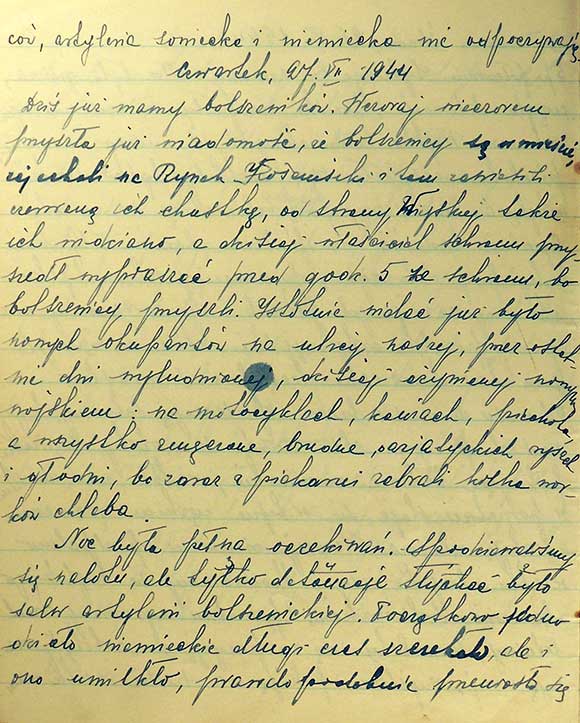 ców, artyleria sowiecka i niemiecka nie odpoczywają.
Czwartek, 27. VII 1944
Dziś już mamy bolszewików. Wczoraj wieczorem
przyszła już wiadomość, że bolszewicy są w mieście,
zajechali na Rynek Kościuszki i tam zawiesili
czerwoną ich chustkę, od strony Wiejskiej także
ich widziano, a dzisiaj właściciel schronu przy-
szedł wypraszać przed godz. 5 ze schronu, bo
bolszewicy przyszli. Istotnie widać już było
nowych okupantów na ulicy naszej, przez ostat-
nie dni wyludnionej, dzisiaj ożywionej nowym
wojskiem: na motocyklach, koniach, piechota,
a wszystko zmęczone, brudne, o azjatyckich rysach
i głodni, bo zaraz z piekarni zabrali kilka wor-
ków chleba.
Noc była pełna oczekiwań. Spodziewaliśmy
się nalotu, ale tylko detonacje słychać było
salw artylerii bolszewickiej. Początkowo jedno
działo niemieckie długi czas szczekało, ale i
ono umilkło, prawdopodobnie przeniosło się